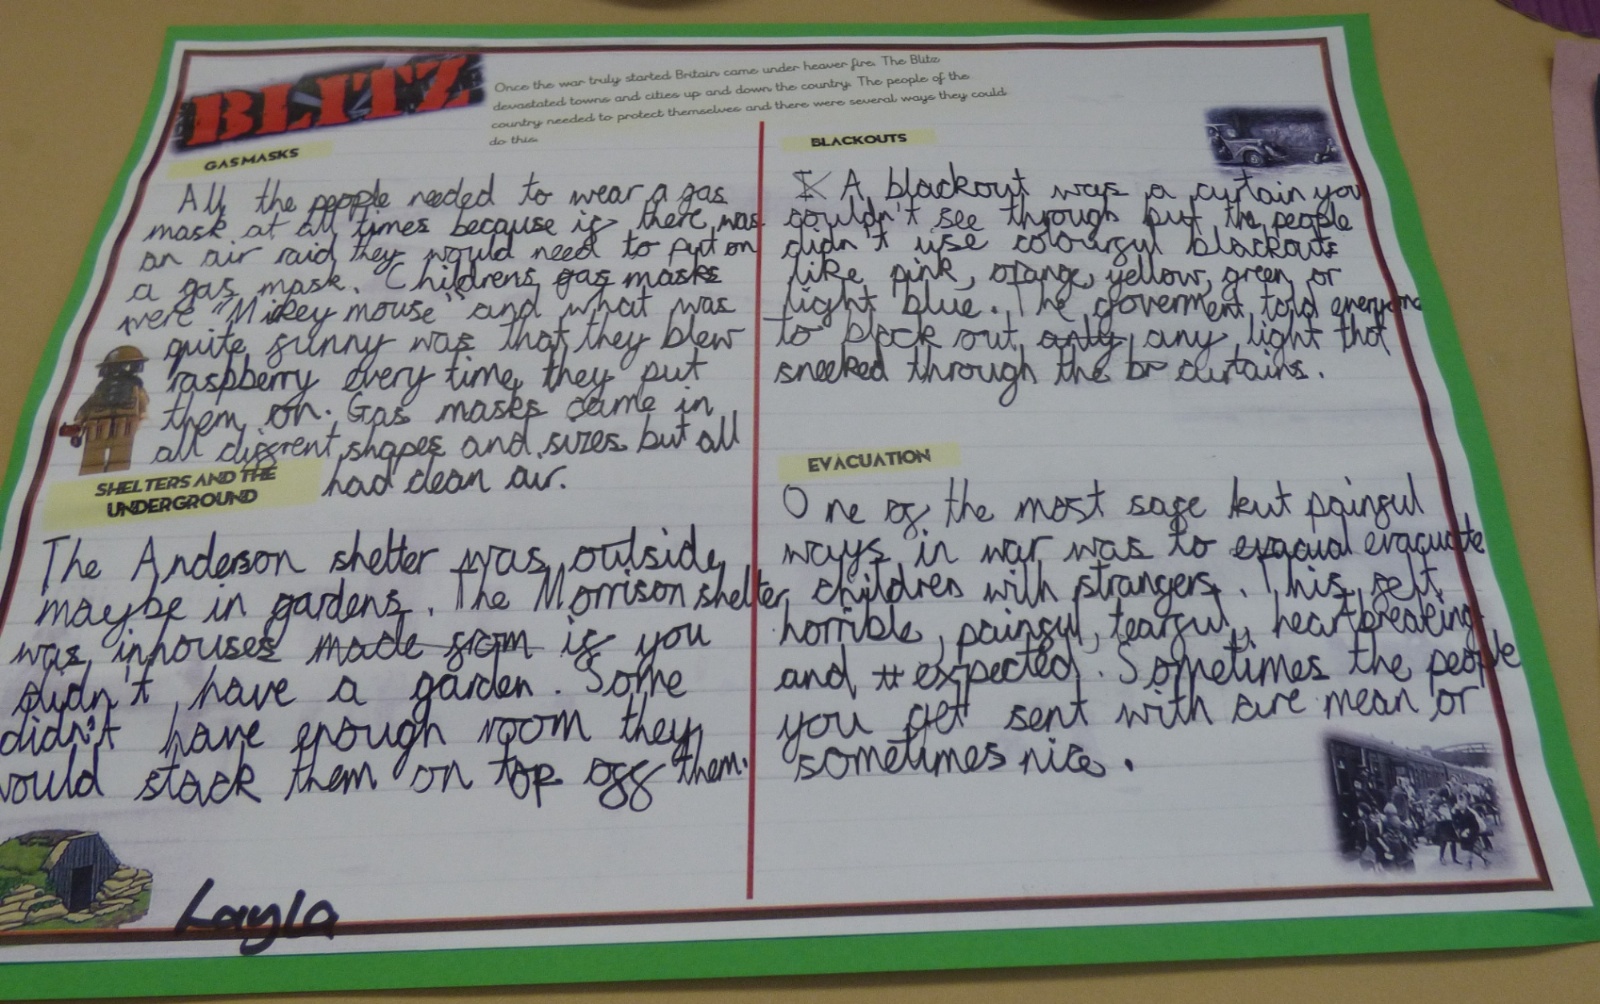 BLITZ
Once the war truly started Britain came under heaver fire. The Blitz
devastated towns and cities up and down the country. The people of the
country needed to protect themselves and there were several ways they could
do this.
GAS MASKS
All the people needed to wear a gas
mask at all times because if there was
an air raid they would need to put on
a gas mask. Childrens gas masks
were "Mikey mouse" and what was
quite funny was that they blew
raspberry every time they put
them on. Gas masks came in
all diffrent shapes and sizes but all
had clean air.
SHELTERS AND THE
UNDERGROUND
The Anderson shelter was outside
maybe in gardens. The Morrison shelter
was inhouses made from if you
didn't have a garden. Some
didn't have enough room they
would stack them on top off them.
Layla
BLACKOUTS
A blackout was a curtain you
couldn't see through but the people
didn't use colourful blackouts
like pink, orange, yellow, green or
light blue. The goverment told everyone
to block out only any light that
sneeked through the br curtains.
EVACUATION
One of the most safe but painful
ways in war was to evacuat evacuate
children with strangers. This felt
horrible, painful, tearful, heartbreaking
and # expected. Sometimes the people
you get sent with are mean or
sometimes nice.